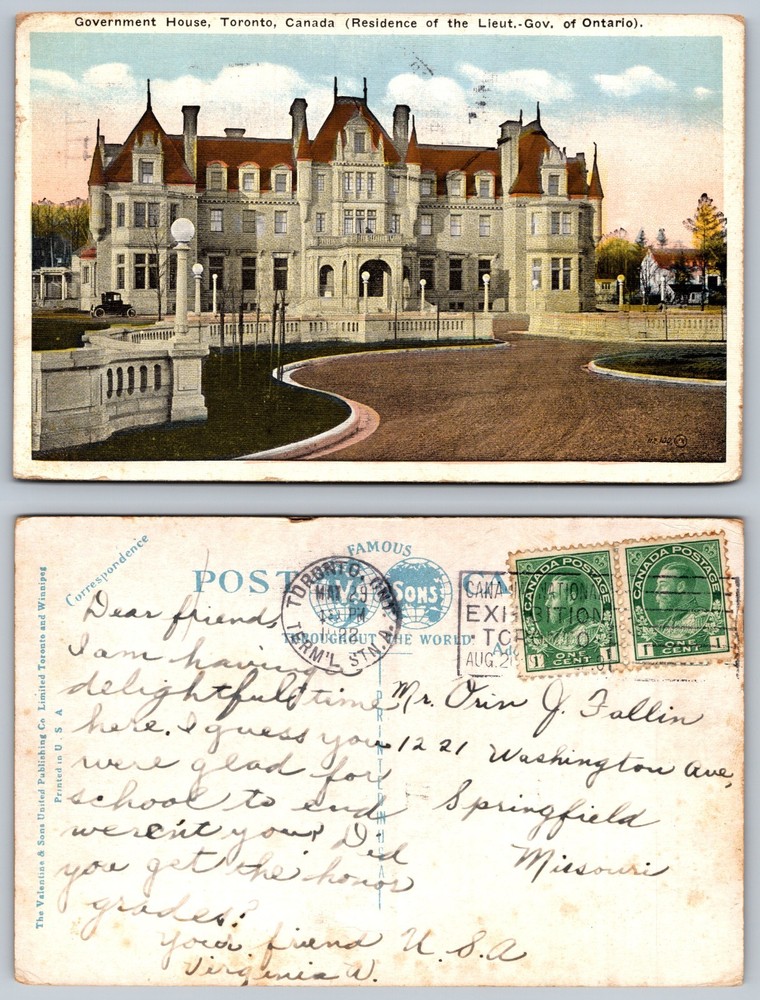 Government House, Toronto, Canada (Residence of the Lieut.-Gov. of Ontario).
Correspondence
FAMOUS
POST CA
SONS
THROUGHOUT THE WORLD
TORONTO, ONT.
MAY 29
PM
TERM'L STN. A.
CANA NATIONAL
EXHIBITION
TORONTO
AUG. 2
CANADA POSTAGE
1 ONE CENT 1
CANADA POSTAGE
1 ONE CENT 1
The Valentine & Sons United Publishing Co. Limited Toronto and Winnipeg
Printed in U. S. A
PRINTED IN USA
Dear friend,
I am having a
delightfull time
here. I guess you
were glad for
school to end
weren't you? Did
you get the honor
grades?
your friend
Virginia W.
Mr. Orin J. Fallin
1221 Washington Ave,
Springfield
Missouri
U. S. A